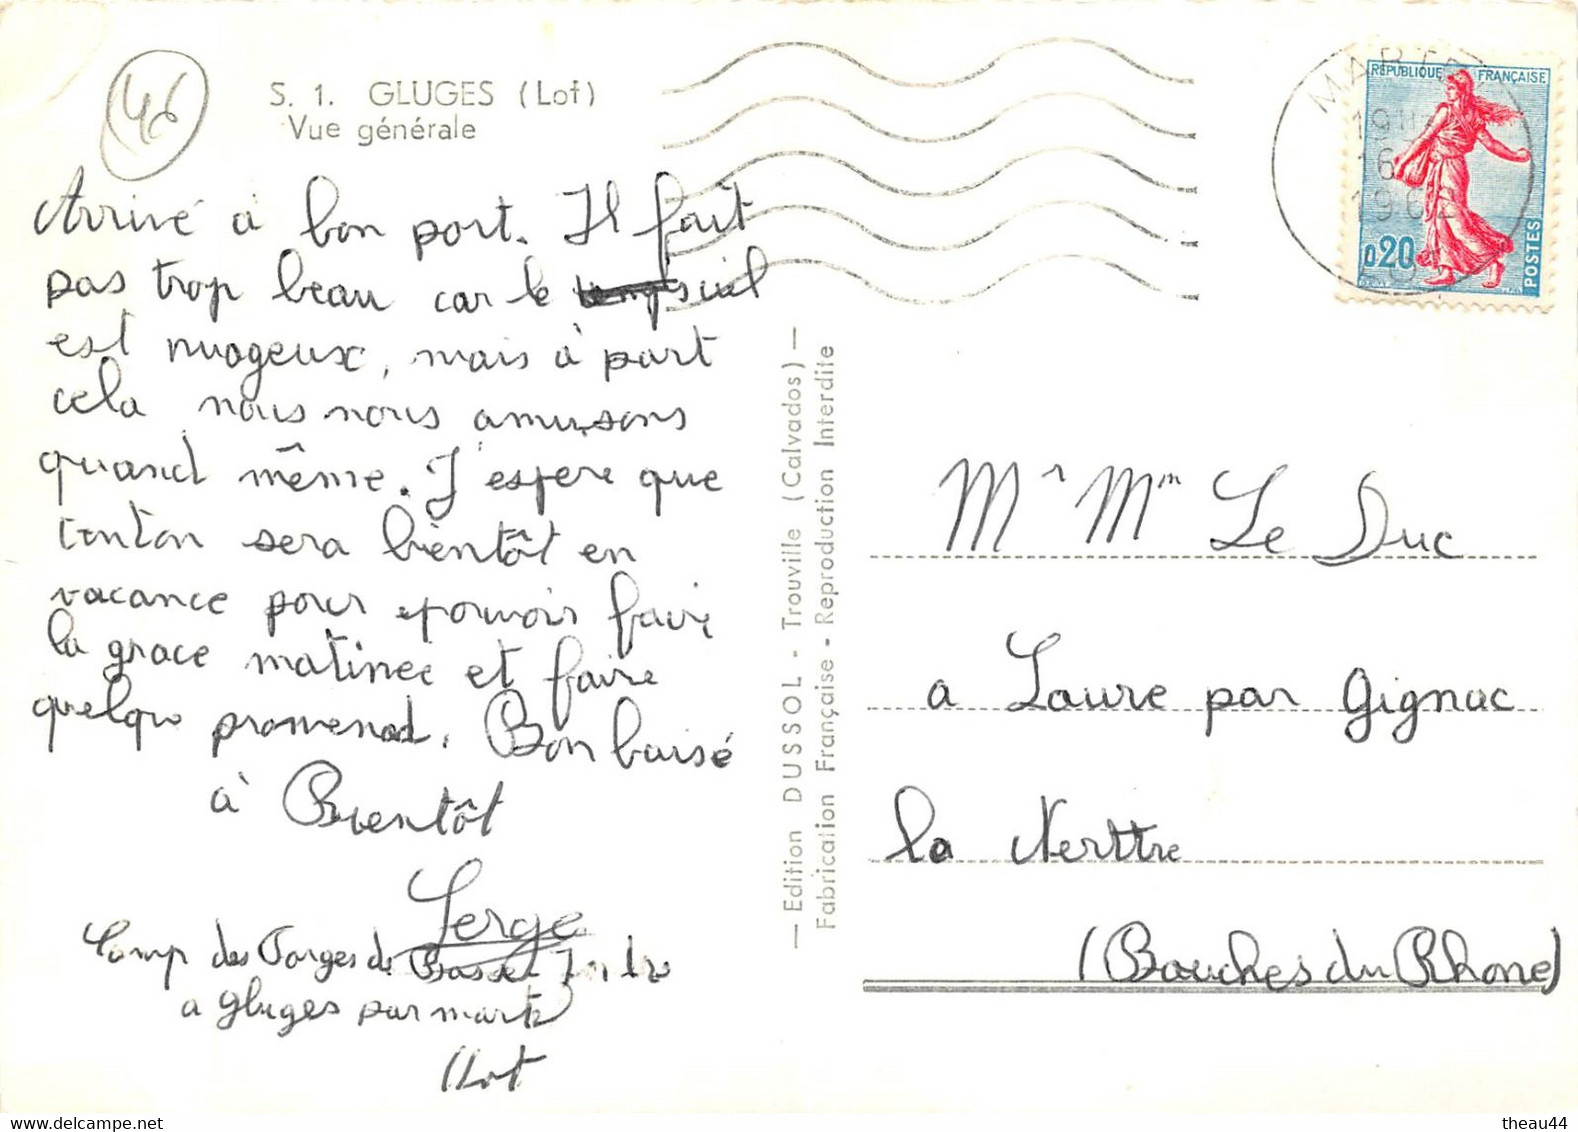 46
S. 1. GLUGES (Lot)
Vue générale
Arrivé à bon port. Il fait
pas trop beau car le ciel
est nuageux, mais à part
cela nous nous amusons
quand même. J'espere que
tonton sera bientôt en
vacance pour pouvoir faire
la grace matinee et faire
quelque promenad. Bon baisé
à Bientôt
Serge
Camp des Forges de Basse
a Gluges par martel
(Lot
— Edition DUSSOL - Trouville (Calvados) —
Fabrication Française - Reproduction Interdite
MARTEL
16
1962
LOT
REPUBLIQUE FRANÇAISE
0,20
POSTES
Mr Mm Le Duc
a Laure par Gignac
la Nerttre
(Bouches du Rhone)
theau44